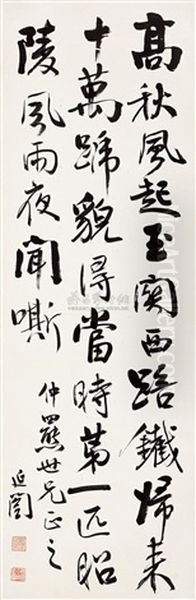 高秋風起玉関西踣鐵歸来
十萬蹏貌得當時第一匹昭
陵風雨夜聞嘶
仲羆世兄正之
延闓